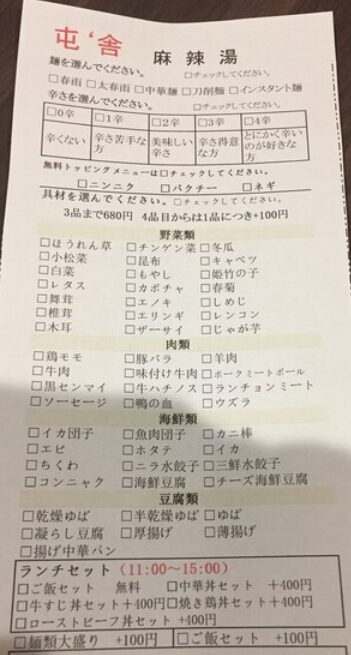 屯‘舎 麻辣湯
麺を選んでください。 □チェックしてください。
□春雨 □太春雨 □中華麺 □刀削麵 □インスタント麺
辛さを選んでください。 □チェックしてください。
□0辛 □1辛 □2辛 □3辛 □4辛
辛くない 辛さ苦手な方 美味しい辛さ 辛さ得意な方 とにかく辛いのが好きな方
無料トッピングメニューは□チェックしてください。
□ニンニク □パクチー □ネギ
具材を選んでください。 □チェックしてください。
3品まで680円 4品目からは1品につき+100円
野菜類
□ほうれん草 □チンゲン菜 □冬瓜
□小松菜 □昆布 □キャベツ
□白菜 □もやし □姫竹の子
□レタス □カボチャ □春菊
□舞茸 □エノキ □しめじ
□椎茸 □エリンギ □レンコン
□木耳 □ザーサイ □じゃが芋
肉類
□鶏モモ □豚バラ □羊肉
□牛肉 □味付け牛肉 □ポークミートボール
□黒センマイ □牛ハチノス □ランチョンミート
□ソーセージ □鴨の血 □ウズラ
海鮮類
□イカ団子 □魚肉団子 □カニ棒
□エビ □ホタテ □イカ
□ちくわ □ニラ水餃子 □三鮮水餃子
□コンニャク □海鮮豆腐 □チーズ海鮮豆腐
豆腐類
□乾燥ゆば □半乾燥ゆば □ゆば
□凝らし豆腐 □厚揚げ □薄揚げ
□揚げ中華パン
ランチセット(11:00~15:00)
□ご飯セット 無料 □中華丼セット +400円
□牛すじ丼セット+400円 □焼き鶏丼セット+400円
□ローストビーフ丼セット +400円
□麺類大盛り +100円 □ご飯セット +100円